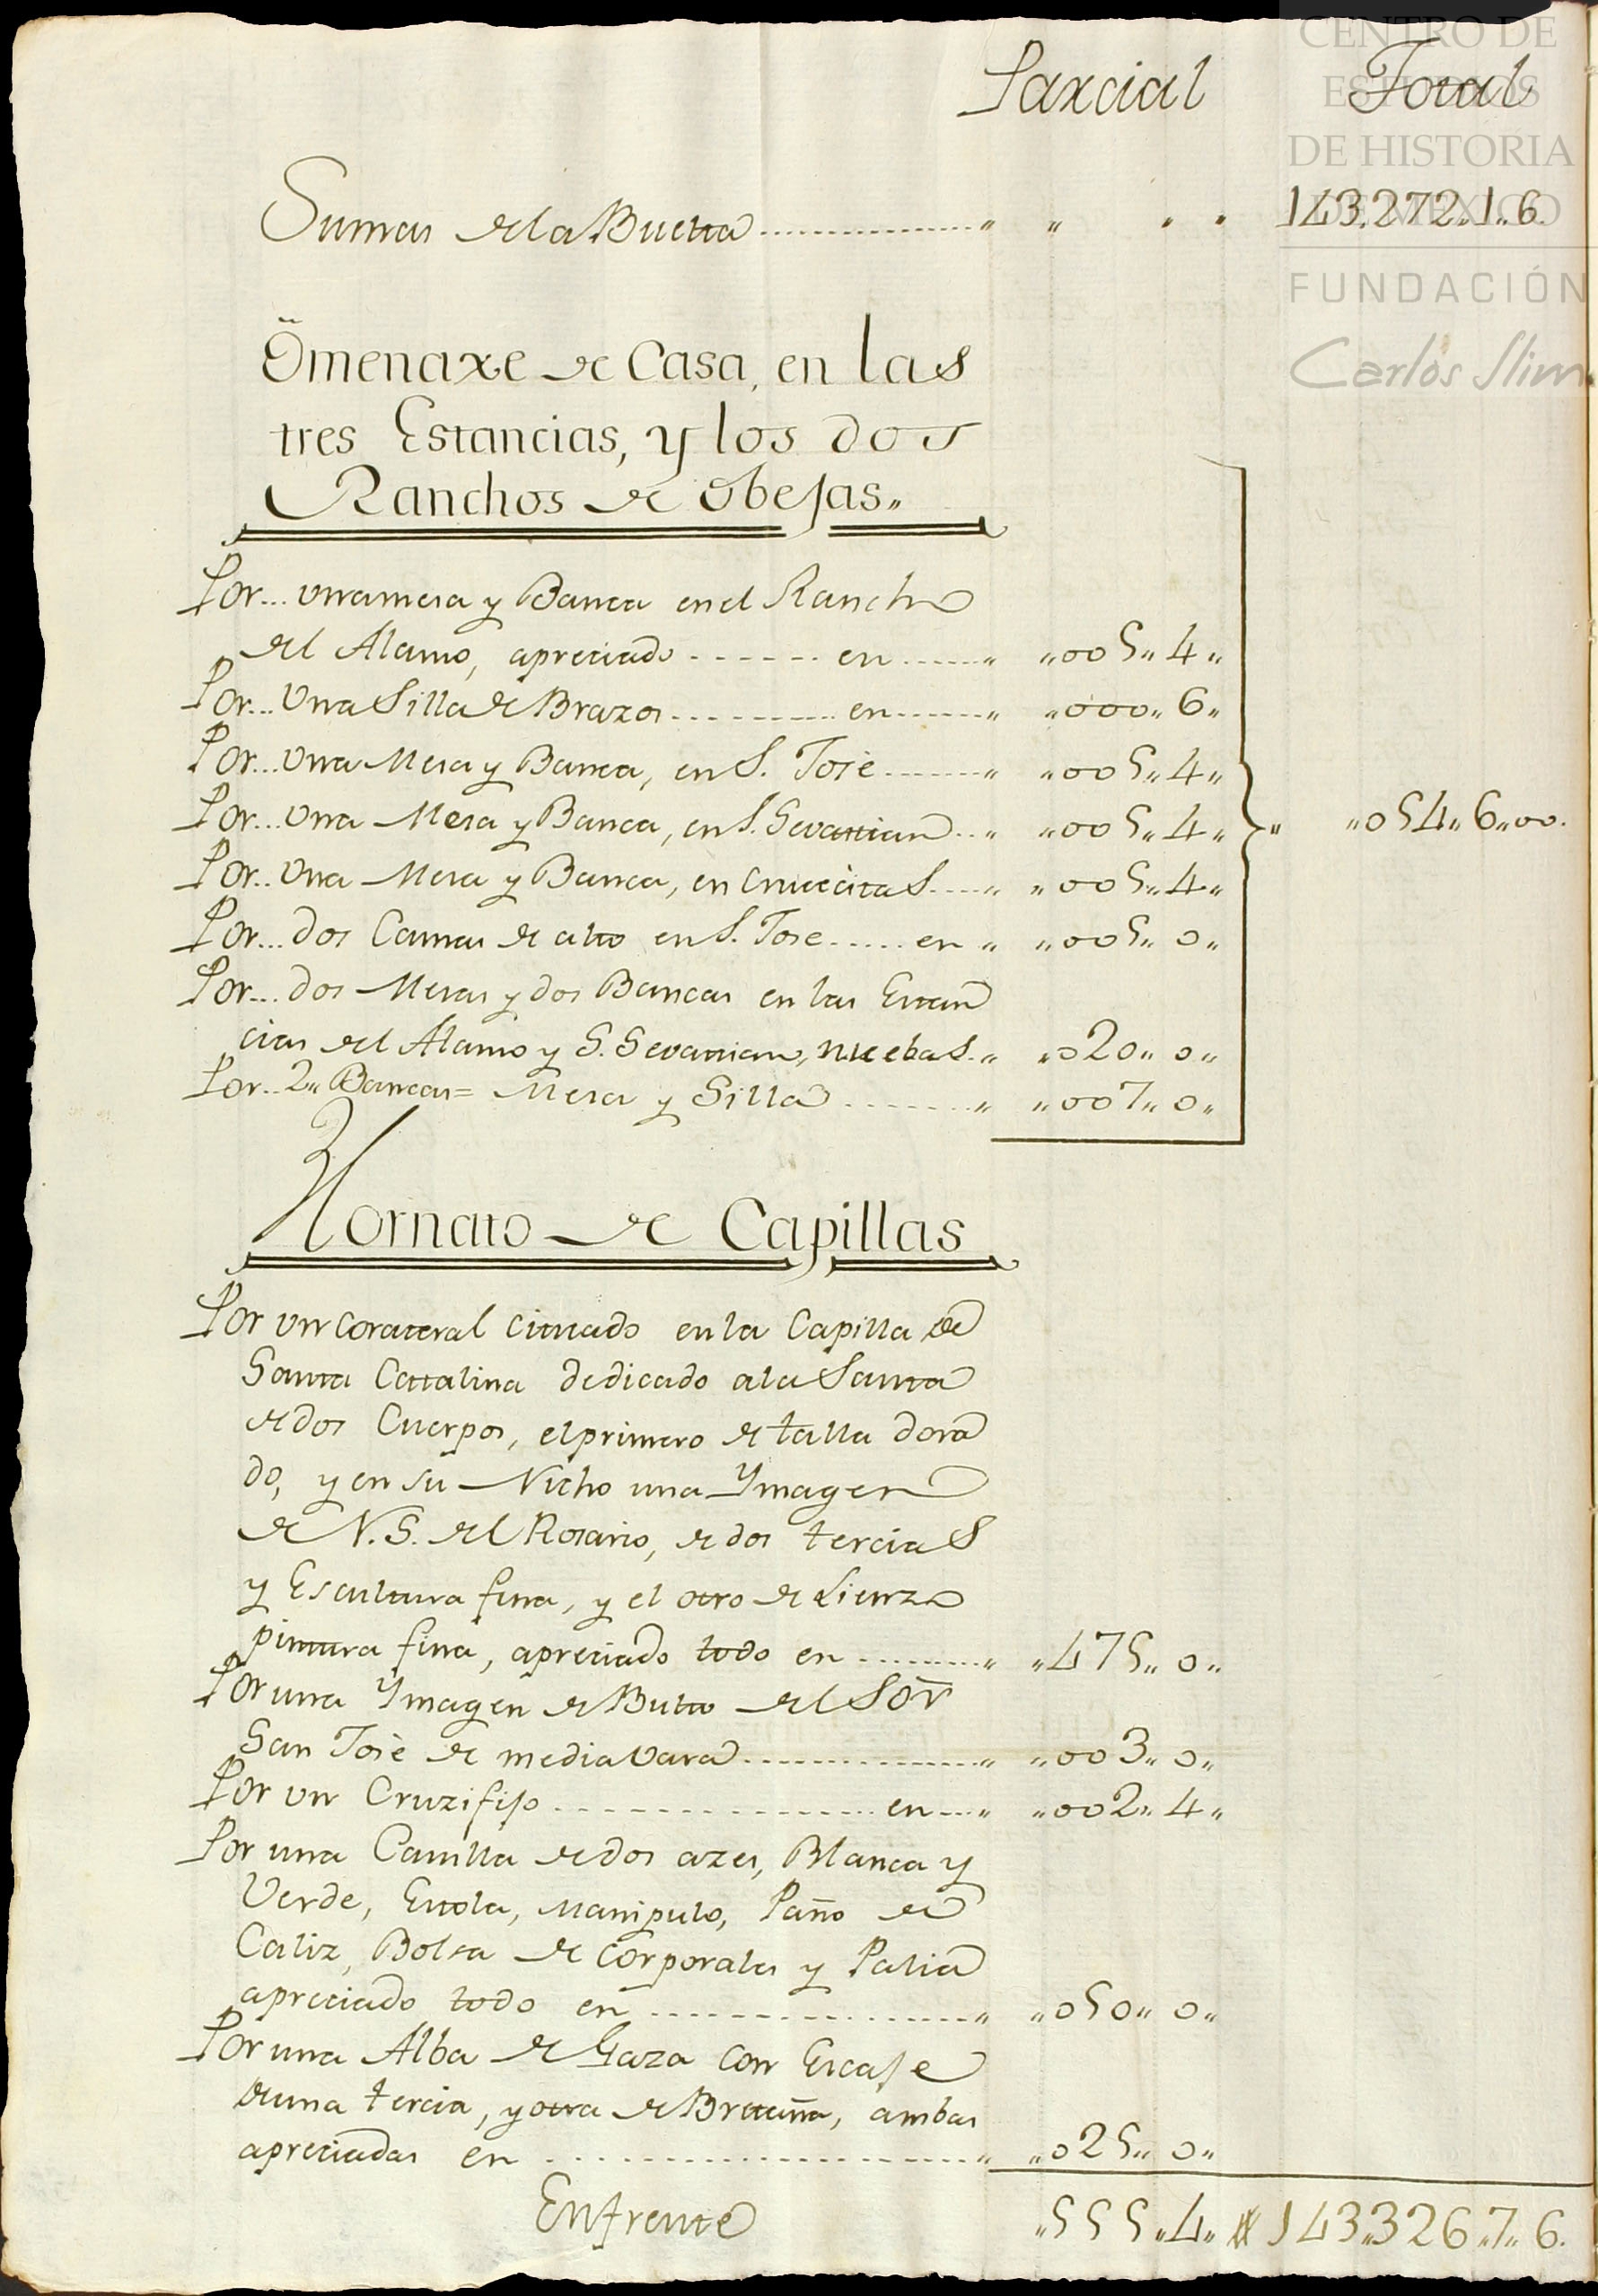 Parcial Total
Sumas de la Buelta " " " " 143.272„1„6.
Omenaxe de Casa, en las
tres Estancias, y los dos
Ranchos de Obejas„
Por... una mesa y Banca en el Rancho
del Alamo, apreciado ------ en ...... „ „005„4„
Por... Una Silla de Brazos .......... en ....... „ „000„6„
Por... Una Mesa y Banca, en S. Josè ........ „ „005„4„
Por... Una Mesa y Banca, en S. Sevastian .. „ „005„4„ } „ „054„6„00.
Por.. Una Mesa y Banca, en Crucecitas .... „ „005„4„
Por... dos Camas de alto en S. Jose ..... en „ „005„0„
Por... dos Mesas y dos Bancas en las Estan
cias del Alamo y S. Sevastian, nuebas. „ „020„0„
Por.. 2„ Bancas= Mesa y Silla ....... „ „007„0„
Hornato de Capillas
Por un Corateral cituado en la Capilla de
Santa Cattalina dedicado a la Santa
de dos Cuerpos, el primero de talla dora
do, y en su Nicho una Ymagen
de N. S. del Rosario, de dos tercias
y Escultura fina, y el otro de Lienzo
pintura fina, apreciado todo en ......... „ „475„0„
Por una Ymagen de Bulto del Sõr
San Josè de media vara ............... „ „003„0„
Por un Cruzifijo ................. en .... „ „002„4„
Por una Casulla de dos azes, Blanca y
Verde, Estola, Manipulo, Paño de
Caliz, Bolsa de Corporales y Palia
apreciado todo en ................ „ „050„0„
Por una Alba de Gaza con Encaje
de una tercia, y otra de Bretaña, ambas
apreciadas en ...................... „ „025„0„
Enfrente „555„4„ 143„326„7„6.
CENTRO DE
ESTUDIOS
DE HISTORIA
DE MÉXICO
FUNDACIÓN
Carlos Slim.